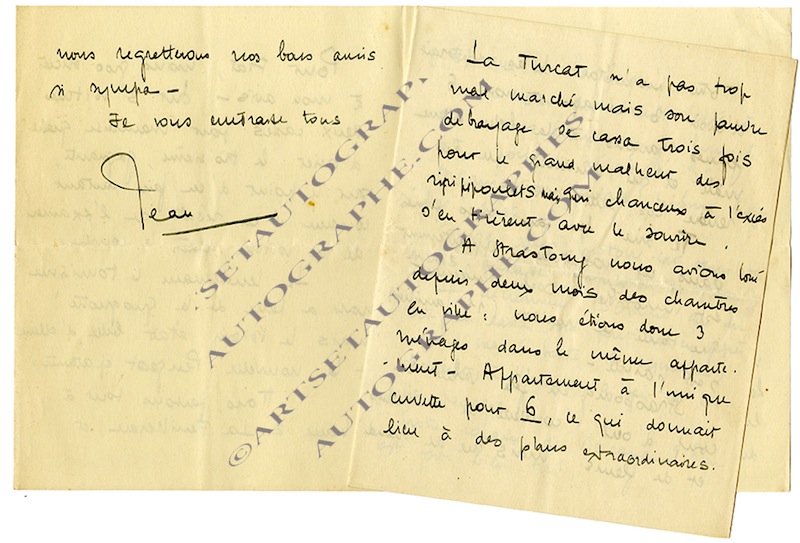 nous regretterons nos bons amis
si sympa –
Je vous embrasse tous
Jean
La Turcat n'a pas trop
mal marché mais son pauvre
débrayage se cassa trois fois
pour le grand malheur des
mais qui chanceux à l'excès
s'en tirèrent avec le sourire.
A Strasbourg nous avions loué
depuis deux mois des chambres
en ville : nous étions donc 3
ménages dans le même apparte-
-ment – Appartement à l'unique
cuvette pour 6, ce qui donnait
lieu à des plans extraordinaires.
©ARTSETAUTOGRAPHES
AUTOGRAPHE.COM